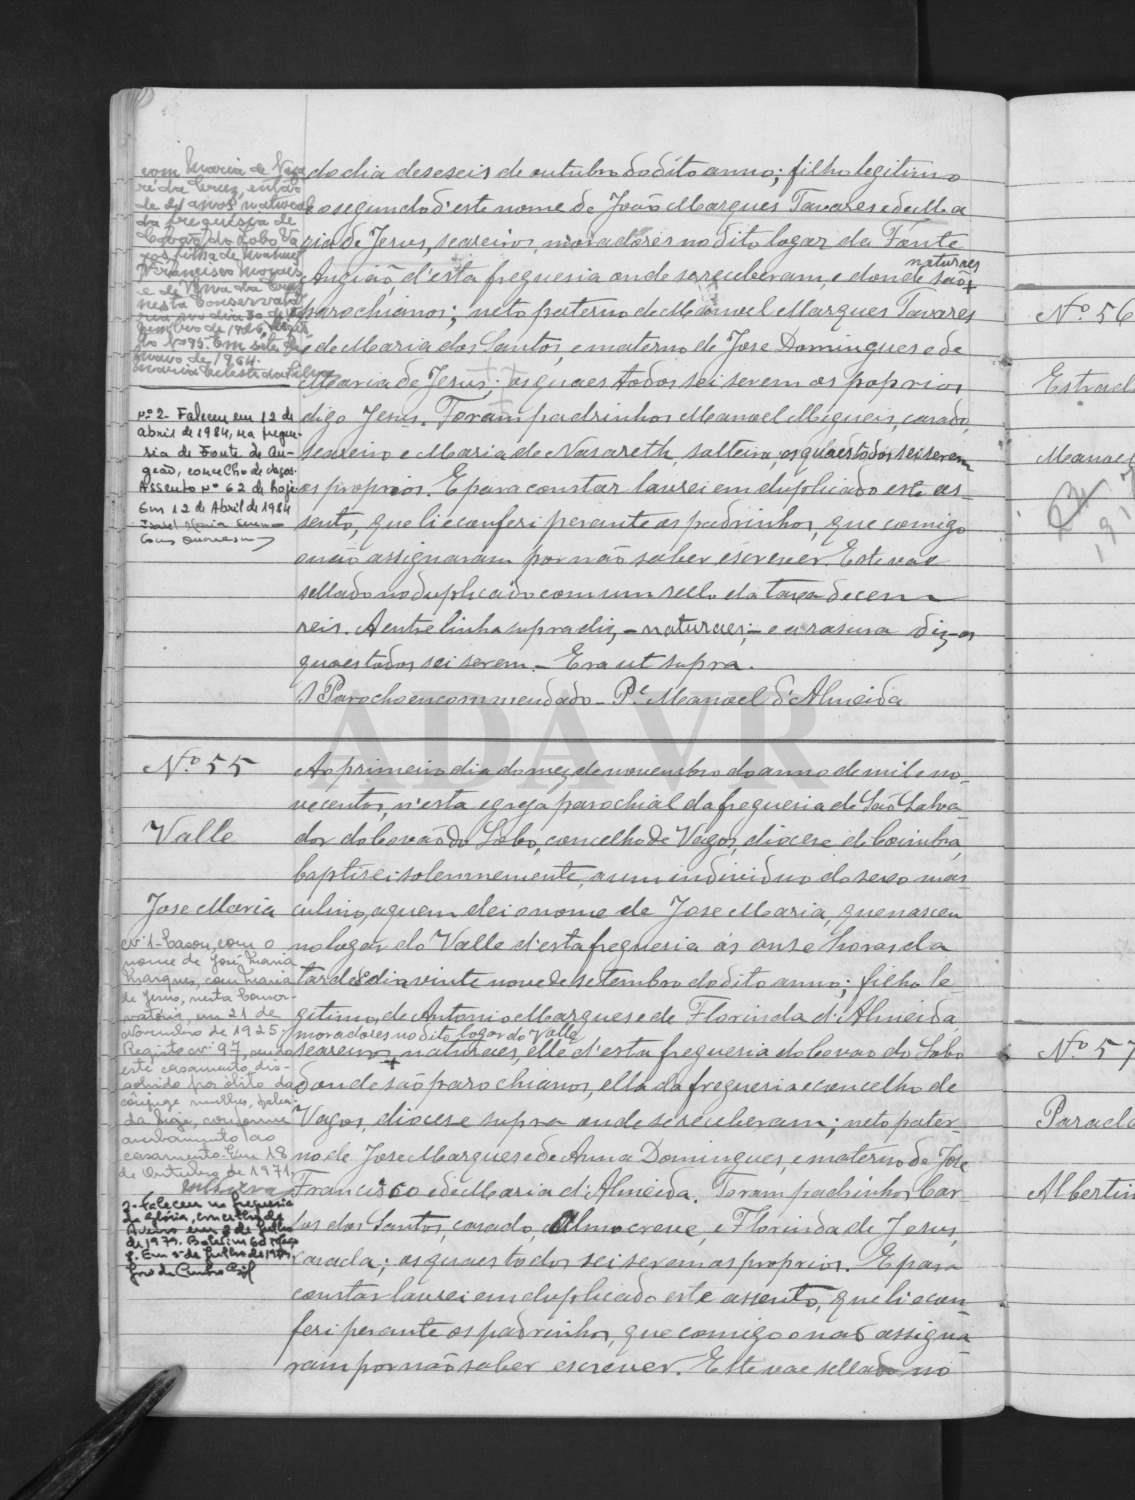 com Maria de Naza-
ré da Cruz, então
de 21 anos, natural
da freguesia de
Covão do Lobo, Va-
gos, filha de Manuel
Francisco Morgado
e de Rosa da Cruz,
nesta Conservató-
ria no dia 30 de
de 1926,
Nº 95. Em sete de
de 1964.
Maria Celeste da Silva
Nº 2 - Faleceu em 12 de
Abril de 1984, na fregue-
sia de Fonte de An-
geão, concelho de Vagos.
Assento nº 62 de hoje.
Em 12 de Abril de 1984
do dia deseseis de outubro do dito anno; filho legitimo
e o segundo d'este nome de João Marques Tavares e de Ma
ria de Jesus, seareiros, moradores no dito logar da Fonte
naturaes
Angião d'esta freguesia onde se receberam, e donde são +
parochianos; neto paterno de Manoel Marques Tavares
e de Maria dos Santos, e materno de Jose Domingues e de
Maria de Jesus; os quaes todos sei serem os poprios
digo Jesus. Foram padrinhos Manoel Migueis, casado,
seareiro e Maria de Nasareth, solteira, os quaes todos sei serem
os proprios. E para constar lavrei em duplicado este as-
sento, que li e conferi perante os padrinhos, que comigo
o não assignaram por não saber escrever. Este vae
sellado no duplicado com um sello da taxa de cem
reis. A entrelinha supra diz, - naturaes; - e a rasura diz - os
quaes todos sei serem. - Era ut supra.
O Parocho encommendado - P.e Manoel d'Almeida
ADAVR
N.º 55
Valle
Jose Maria
Nº 1 - Casou, com o
nome de José Maria
Marques, com Maria
de Jesus, nesta Conser-
vatória, em 21 de
Novembro de 1925,
Registo nº 97, sendo
este casamento dis-
solvido por óbito da
cônjuge mulher, fale-
da hoje, conforme
averbamento ao
casamento. Em 18
de Outubro de 1971,
2 - Faleceu na freguesia
da Glória, concelho de
Aveiro em 2 de Julho
de 1979. Boletim
Em 5 de Julho de 1979
Ao primeiro dia do mez de novembro do anno de mil e no-
vecentos, n'esta egreja parochial da freguesia de São Salva-
dor do Covão do Lobo, concelho de Vagos, diocese de Coimbra,
baptisei solemnemente, a um individuo do sexo mas-
culino, a quem dei o nome de Jose Maria, que nasceu
no logar do Valle d'esta freguesia ás onze horas da
tarde do dia vinte nove de setembro do dito anno; filho le-
gitimo, de Antonio Marques e de Florinda d'Almeida,
moradores no dito logar do Valle
seareiros, + naturaes, elle d'esta freguesia do Covao do Lobo
donde são parochianos, ella da freguesia e concelho de
Vagos, diocese supra onde se receberam; neto pater-
no de Jose Marques e de Anna Domingues, e materno de Jose
Francisco e de Maria d'Almeida. Foram padrinhos Car-
los dos Santos, casado, Almocreve, e Florinda de Jesus,
casada; os quaes todos sei serem os proprios. E para
constar lavrei em duplicado este assento, que li e con-
feri perante os padrinhos, que comigo o não assigna-
ram por não saber escrever. Este vae sellado no
N.º 56
Estrad
Manoel
N.º 57
Parada
Albertin